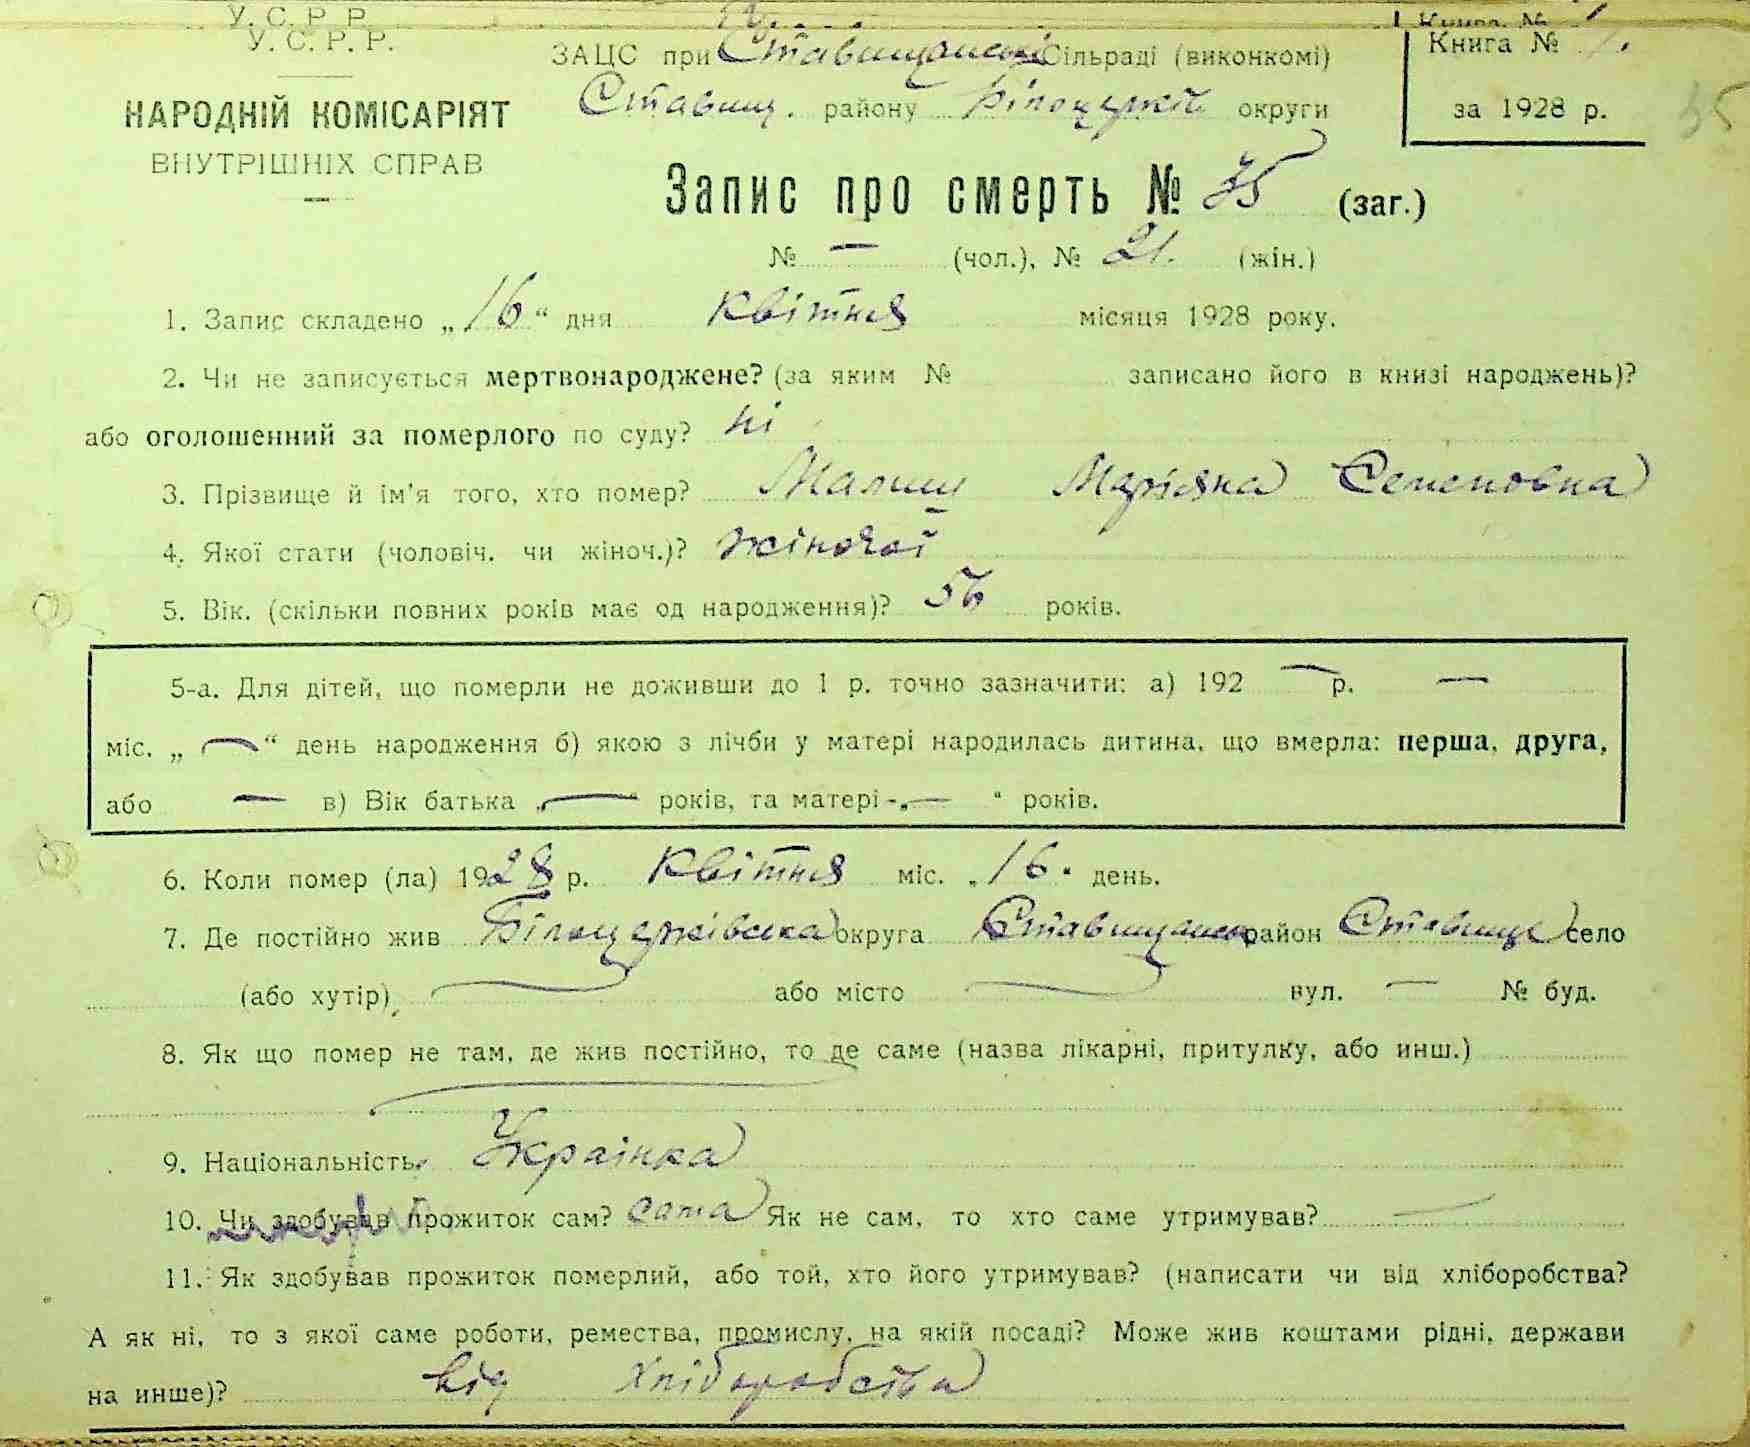 У. С. Р. Р.
У. С. Р. Р.
НАРОДНІЙ КОМІСАРІЯТ
ВНУТРІШНІХ СПРАВ
ЗАЦС при Ставищанській Сільраді (виконкомі)
Ставищ. району Білоцерків округи
Книга №
Книга № 1.
за 1928 р.
35
Запис про смерть № 35 (заг.)
№ — (чол.), № 21. (жін.)
1. Запис складено „16“ дня квітня місяця 1928 року.
2. Чи не записується мертвонароджене? (за яким № записано його в книзі народжень)?
або оголошенний за померлого по суду? ні
3. Прізвище й ім'я того, хто помер? Маріяна Семеновна
4. Якої стати (чоловіч. чи жіноч.)? жіночої
5. Вік. (скільки повних років має од народження)? 56 років.
5-а. Для дітей, що померли не доживши до 1 р. точно зазначити: а) 192 — р. —
міс. „ — “ день народження б) якою з лічби у матері народилась дитина, що вмерла: перша, друга,
або — в) Вік батька „ — “ років, та матері - „ — “ років.
6. Коли помер (ла) 1928 р. квітня міс. „16“ день.
7. Де постійно жив Білоцерківська округа Ставищанськ район Ставище село
(або хутір) — або місто — вул. — № буд.
8. Як що помер не там, де жив постійно, то де саме (назва лікарні, притулку, або инш.)
9. Національність Українка
10. Чи здобував прожиток сам? сама Як не сам, то хто саме утримував? —
11. Як здобував прожиток померлий, або той, хто його утримував? (написати чи від хліборобства?
А як ні, то з якої саме роботи, ремества, промислу, на якій посаді? Може жив коштами рідні, держави
на инше)? від хліборобства